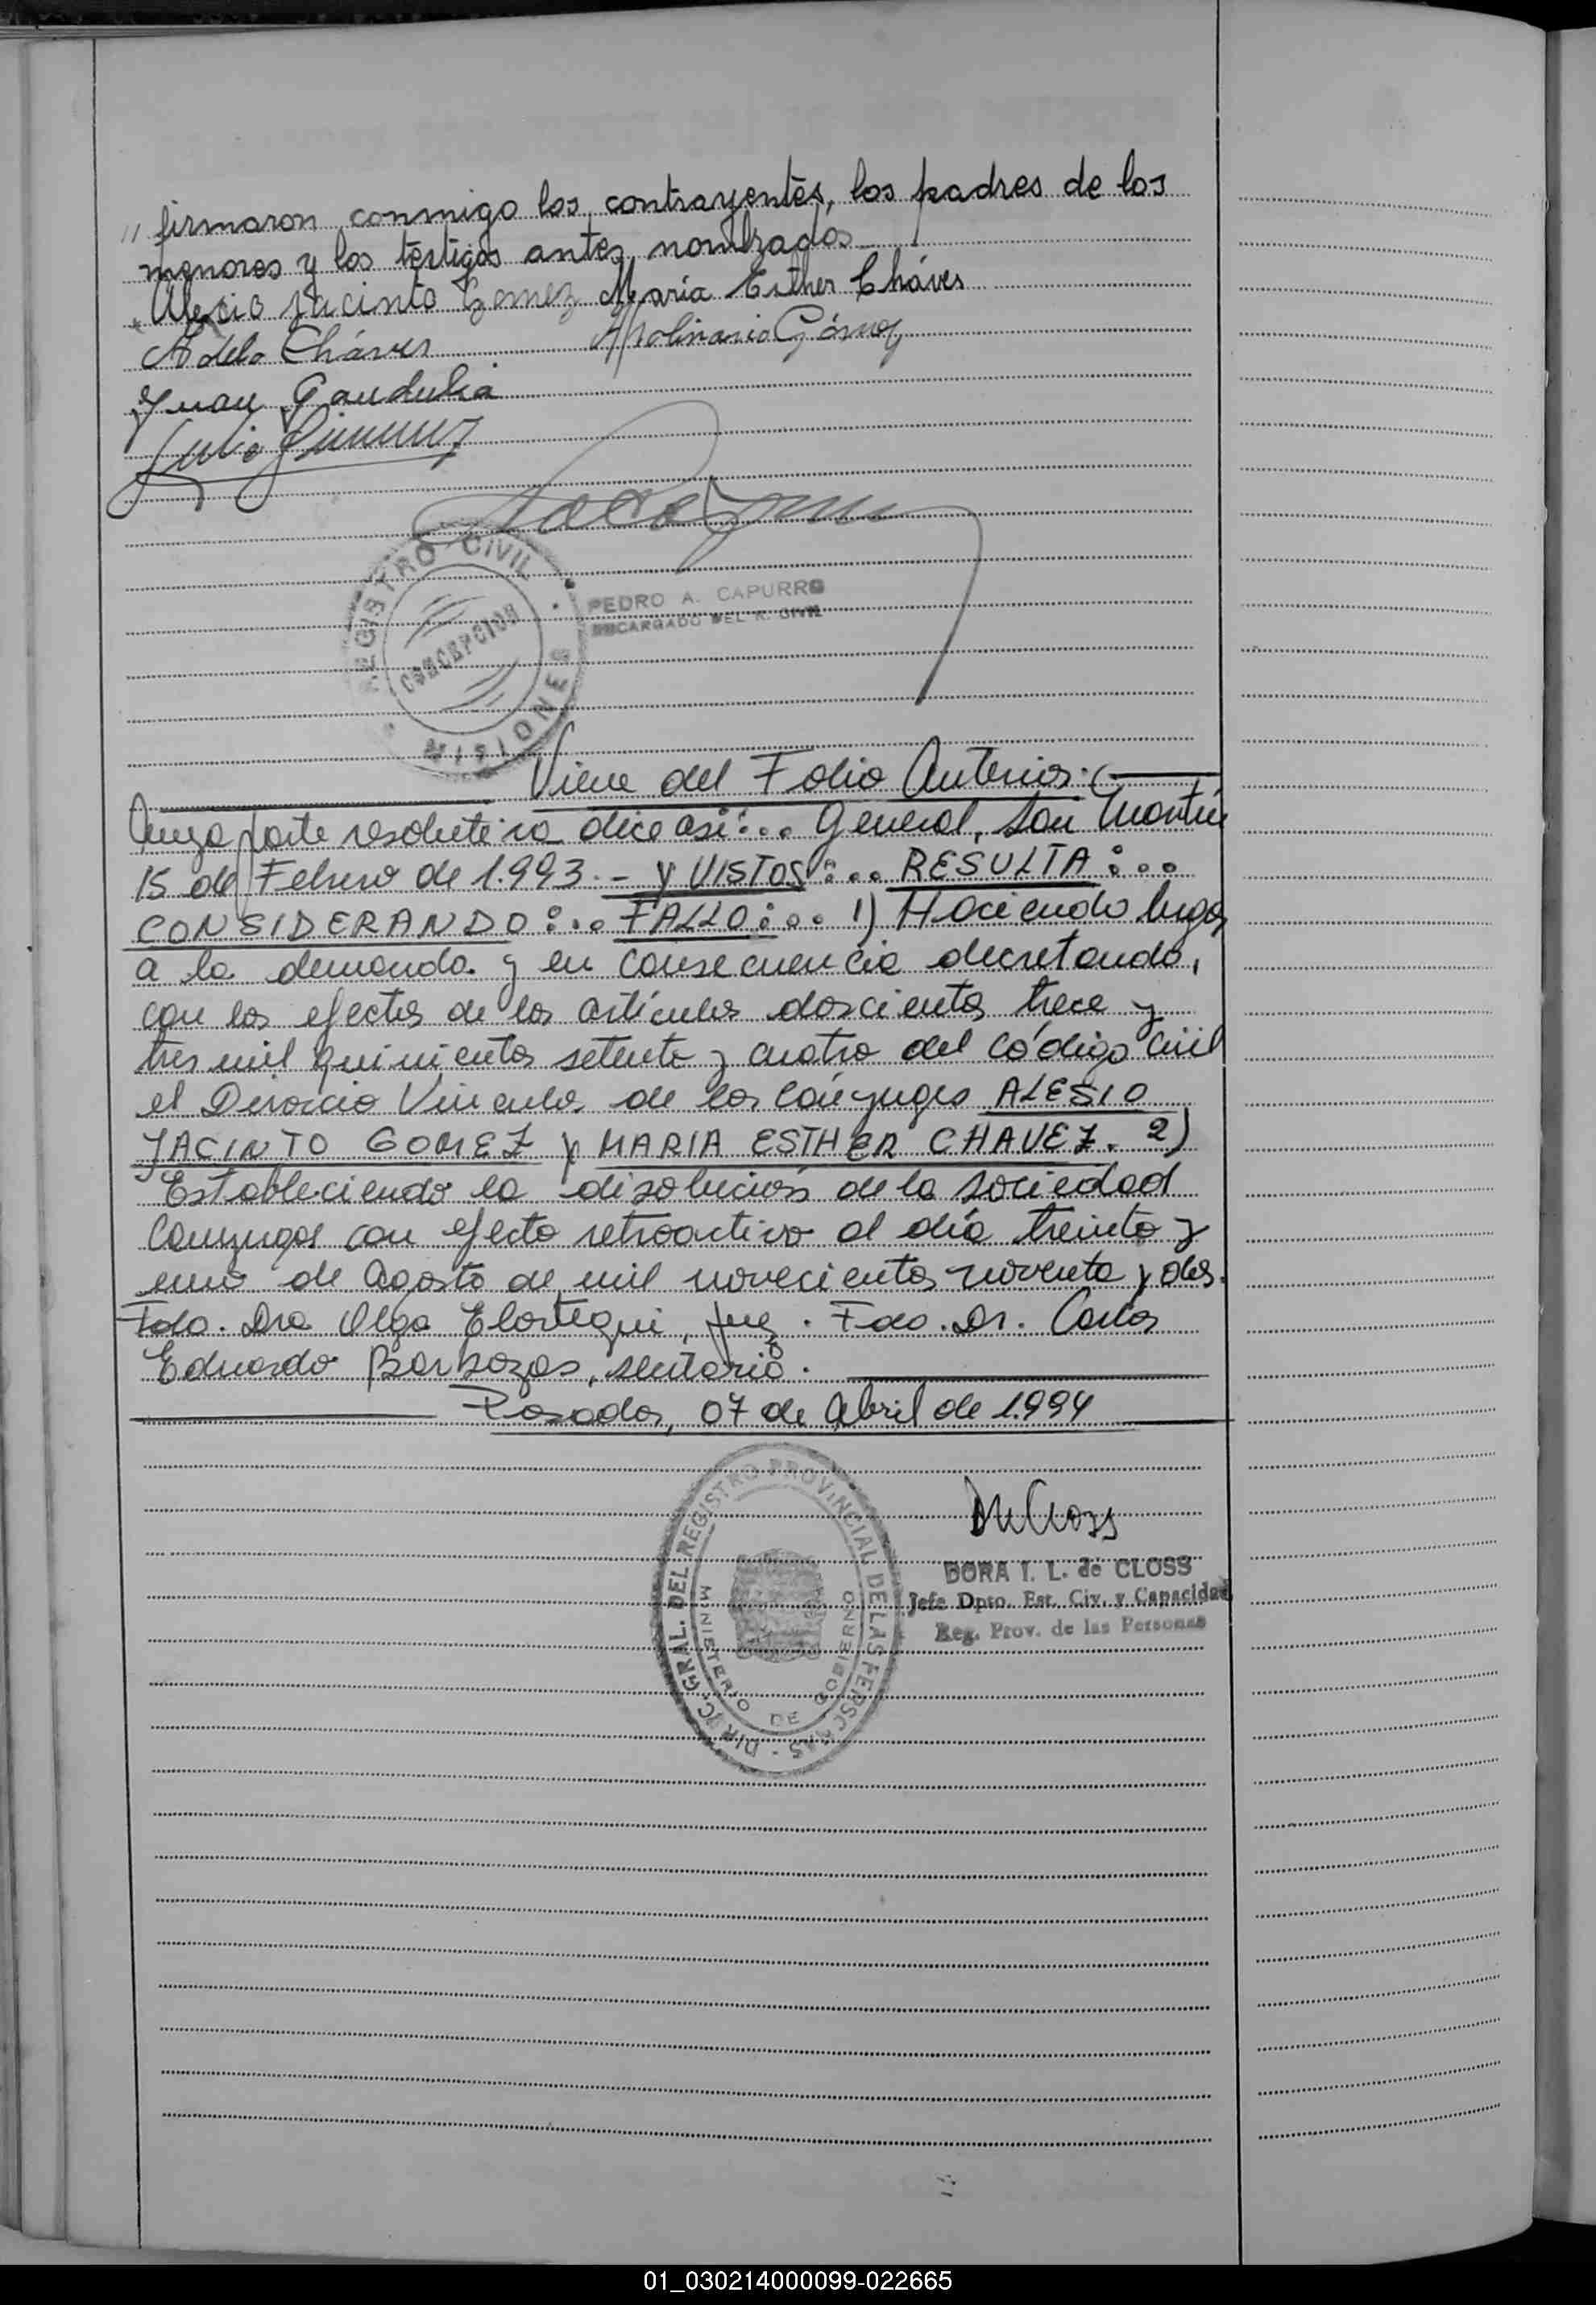 " firmaron conmigo los contrayentes, los padres de los
menores y los testigos antes nombrados
Alesio Jacinto Gomez María Esther Cháves
Adela Cháves Apolinario Gómez
Juan Gandulia
Julio Gimenez
REGISTRO CIVIL
CONCEPCION
MISIONES
PEDRO A. CAPURRO
ENCARGADO DEL R. CIVIL
Viene del Folio Anterior:(
Cuya parte resolutiva dice asi:... General, San Martín
15 de Febrero de 1.993.- y VISTOS:... RESULTA:...
CONSIDERANDO:... FALLO:... 1) Haciendo lugar
a la demanda y en consecuencia decretando,
con los efectos de los artículos doscientos trece y
tres mil quinientos setenta y cuatro del Código Civil
el Divorcio Vincular de los Cónyuges ALESIO
JACINTO GOMEZ y MARIA ESTHER CHAVEZ. 2)
Estableciendo la disolución de la sociedad
Conyugal con efecto retroactivo al día treinta y
uno de Agosto de mil novecientos noventa y dos.
Fdo. Dra Olga Elortegui, Juez. Fdo. Dr. Carlos
Eduardo Barbozas, secretario.
Posadas, 07 de Abril de 1.994
DIREC. GRAL. DEL REGISTRO PROVINCIAL DE LAS PERSONAS -
MINISTERIO DE GOBIERNO
DORA I. L. de CLOSS
Jefe Dpto. Est. Civ. y Capacidad
Reg. Prov. de las Personas
01_030214000099-022665